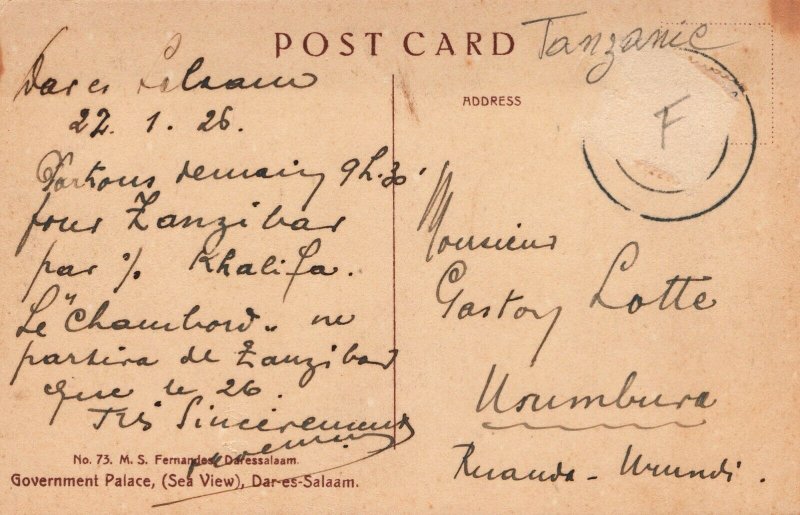 POST CARD
Tanzanie
ADDRESS
F
Dar es Salaam
22. 1. 26.
Partons demain 9h.30
pour Zanzibar
par Khalifa.
Le "Chambord" ne
partira de Zanzibar
que le 26.
Très Sincèrement
Monsieur
Gaston Lotte
Usumbura
Ruanda-Urundi.
No. 73. M. S. Fernandes, Daressalaam.
Government Palace, (Sea View), Dar-es-Salaam.